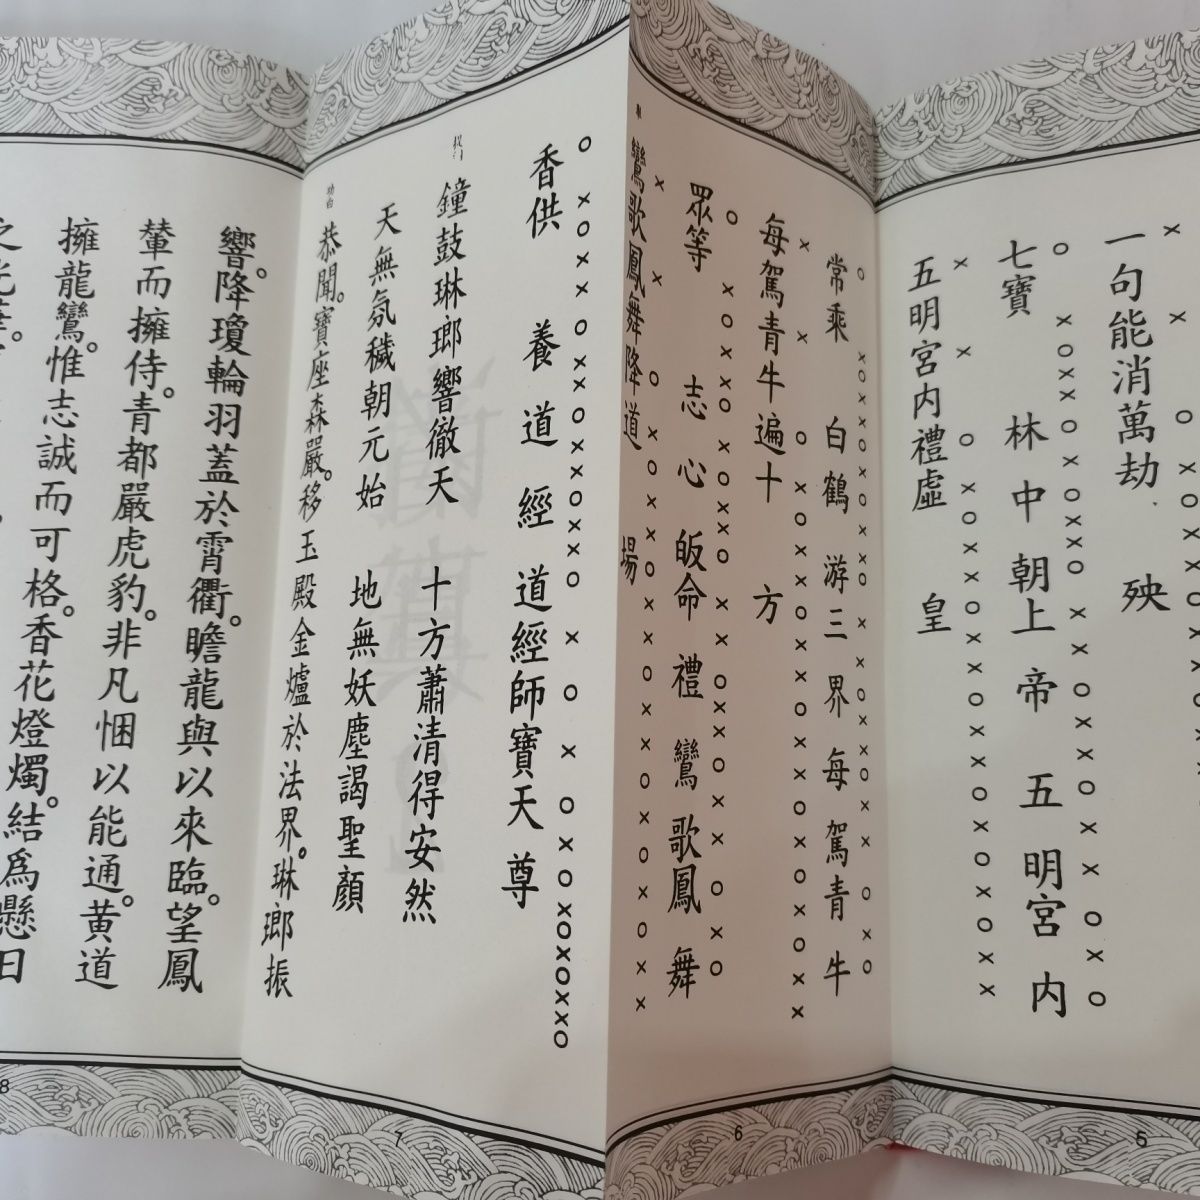 一句能消萬劫殃
七寶林中朝上帝五明宮內
五明宮內禮虛皇
5
常乘白鶴游三界每駕青牛
每駕青牛遍十方
眾等志心皈命禮鸞歌鳳舞
鸞歌鳳舞降道場
6
香供養道經道經師寶天尊
鐘鼓琳瑯響徹天 十方蕭清得安然
天無氛穢朝元始 地無妖塵謁聖顏
功白 恭聞。寶座森嚴。移玉殿金爐於法界。琳瑯振
7
響。降瓊輪羽蓋於霄衢。瞻龍與以來臨。望鳳
輦而擁侍。青都嚴虎豹。非凡悃以能通。黃道
擁龍鸞。惟志誠而可格。香花燈燭。結爲懸日
之光華。
8